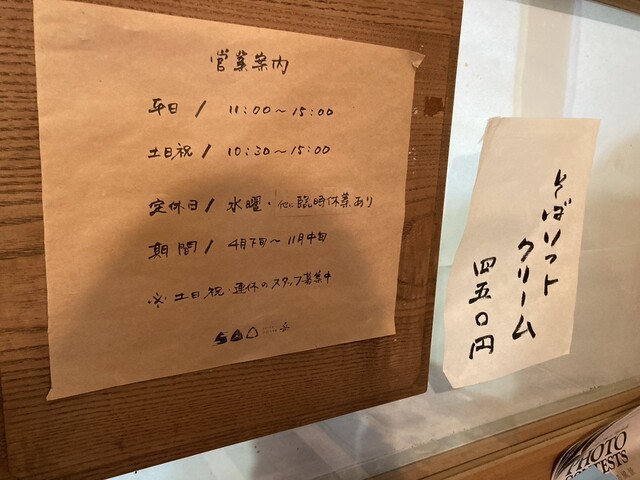 営業案内
平日 / 11:00～15:00
土日祝 / 10:30～15:00
定休日 / 水曜・他に臨時休業あり
期間 / 4月下旬～11月中旬
※ 土日祝・連休のスタッフ募集中
そばソフト
クリーム
四五〇円
PHOTO